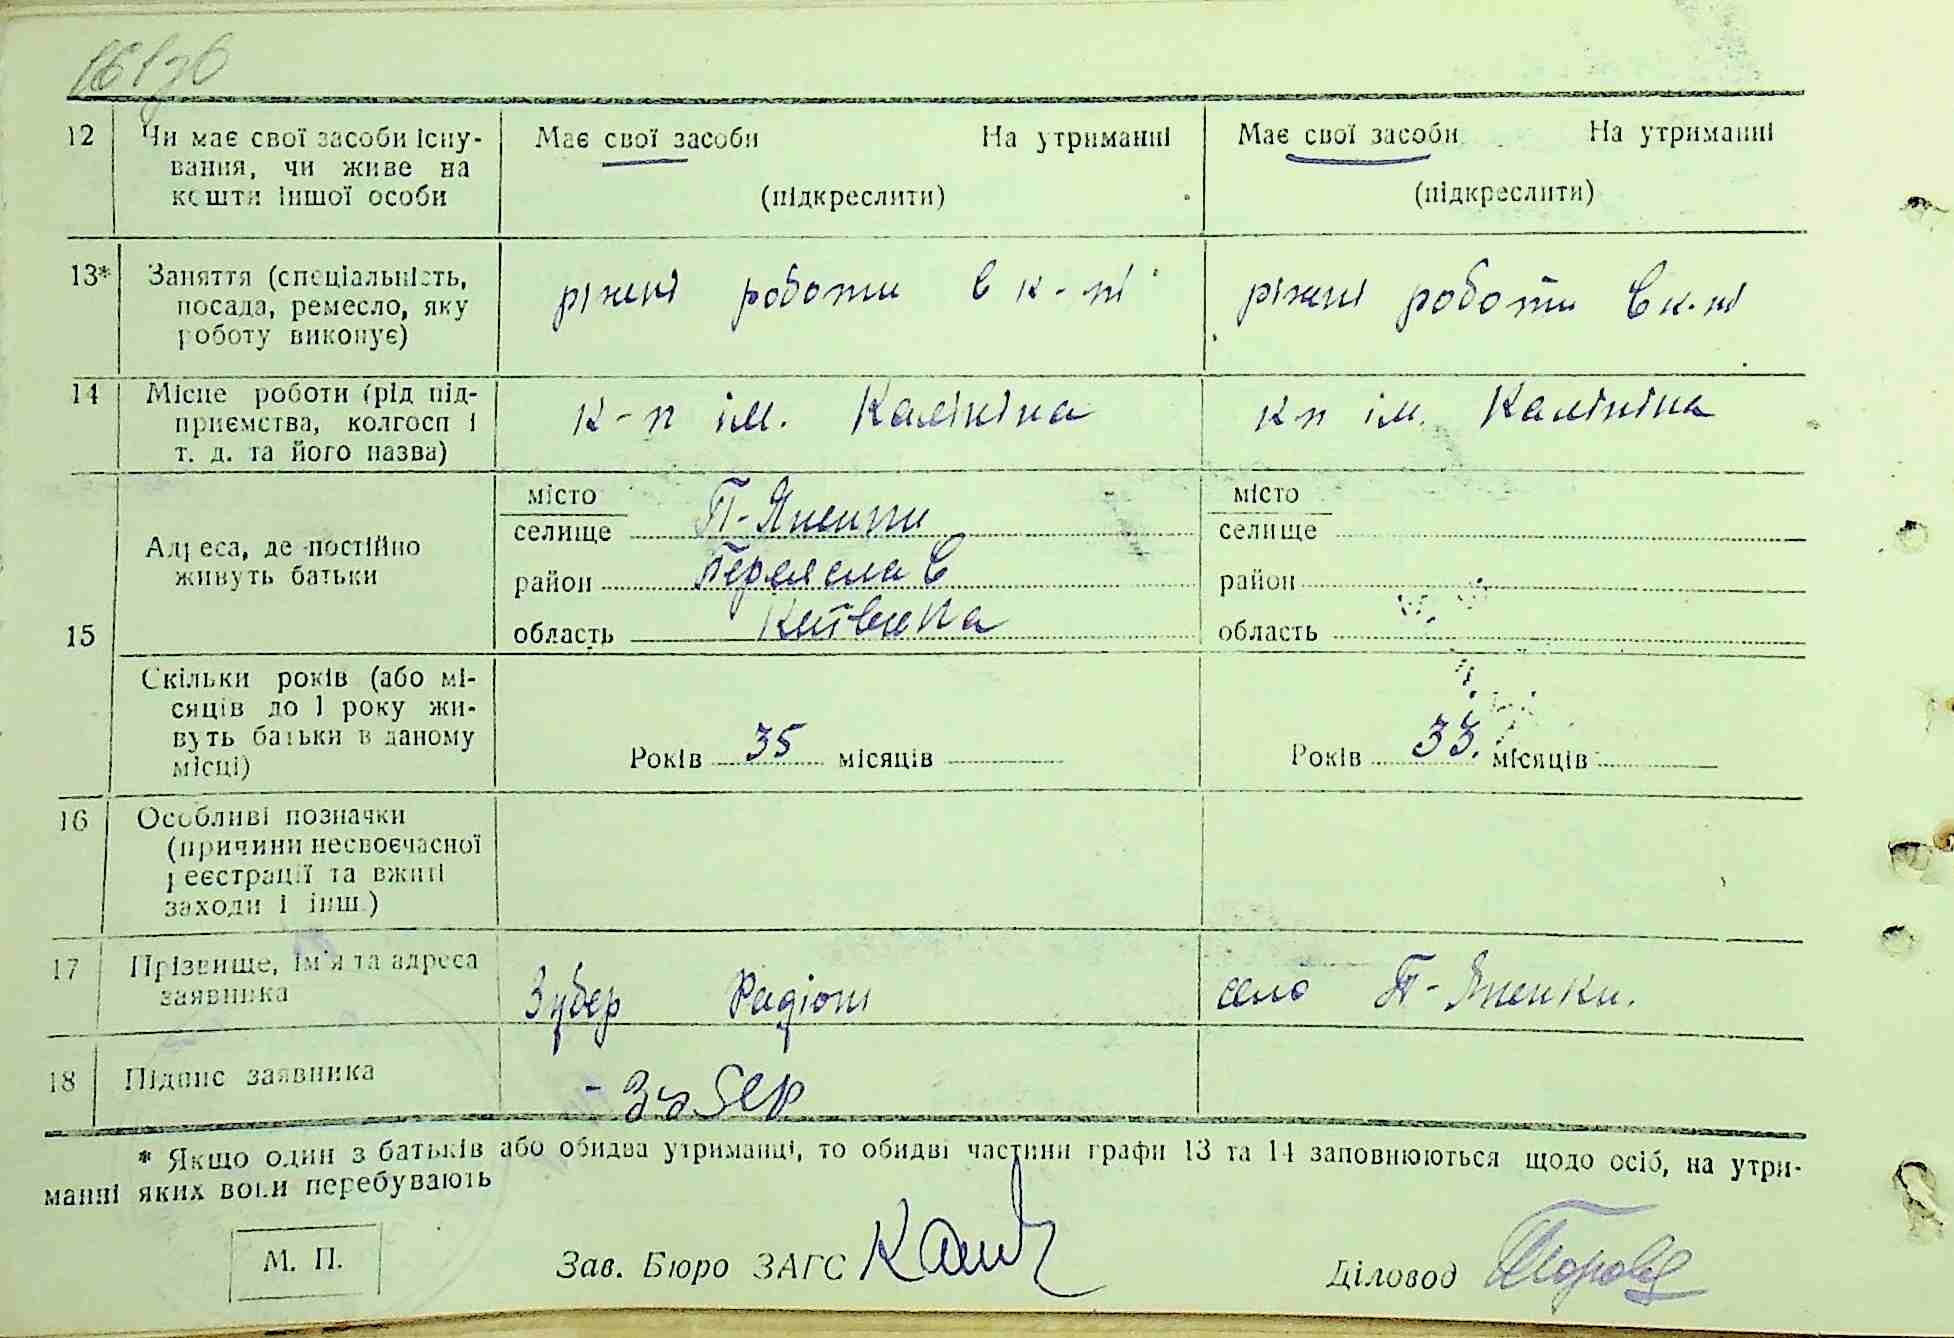 12 Чи має свої засоби існу- Має свої засоби На утриманні Має свої засоби На утриманні
вання, чи живе на
кошти іншої особи (підкреслити) (підкреслити)
13* Заняття (спеціальність, різні роботи в к-пі різні роботи в к-пі
посада, ремесло, яку
роботу виконує)
14 Місце роботи (рід під- к-п ім. Калініна кп ім. Калініна
приємства, колгосп і
т. д. та його назва)
15 Адреса, де постійно
живуть батьки
місто місто
селище П-Яненки селище
район Переяслав район
область Київська область
Скільки років (або мі-
сяців до 1 року жи-
вуть батьки в даному
місці) Років 35 місяців Років 33. місяців
16 Особливі позначки
(причини несвоєчасної
реєстрації та вжиті
заходи і інш.)
17 Прізвище, ім'я та адреса Зубер Радіон село П-Яненки.
заявника
18 Підпис заявника - Зубер
* Якщо один з батьків або обидва утриманці, то обидві частини графи 13 та 14 заповнюються щодо осіб, на утри-
манні яких вони перебувають
М. П. Зав. Бюро ЗАГС Діловод